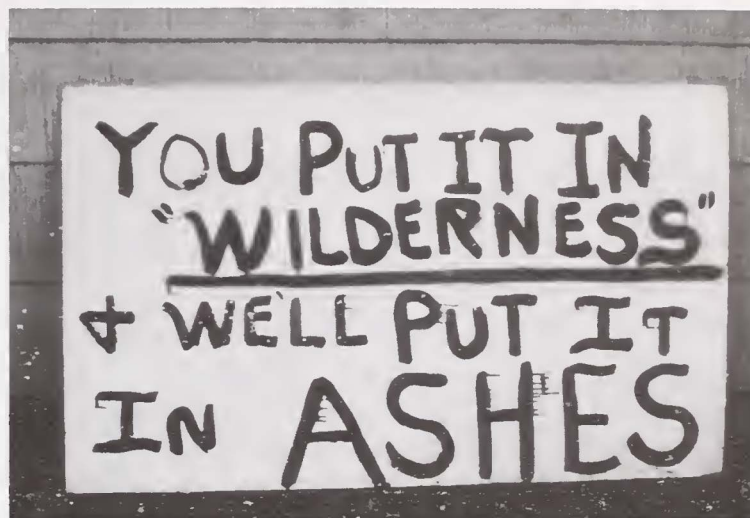 YOU PUT IT IN
"WILDERNESS"
& WE'LL PUT IT
IN ASHES